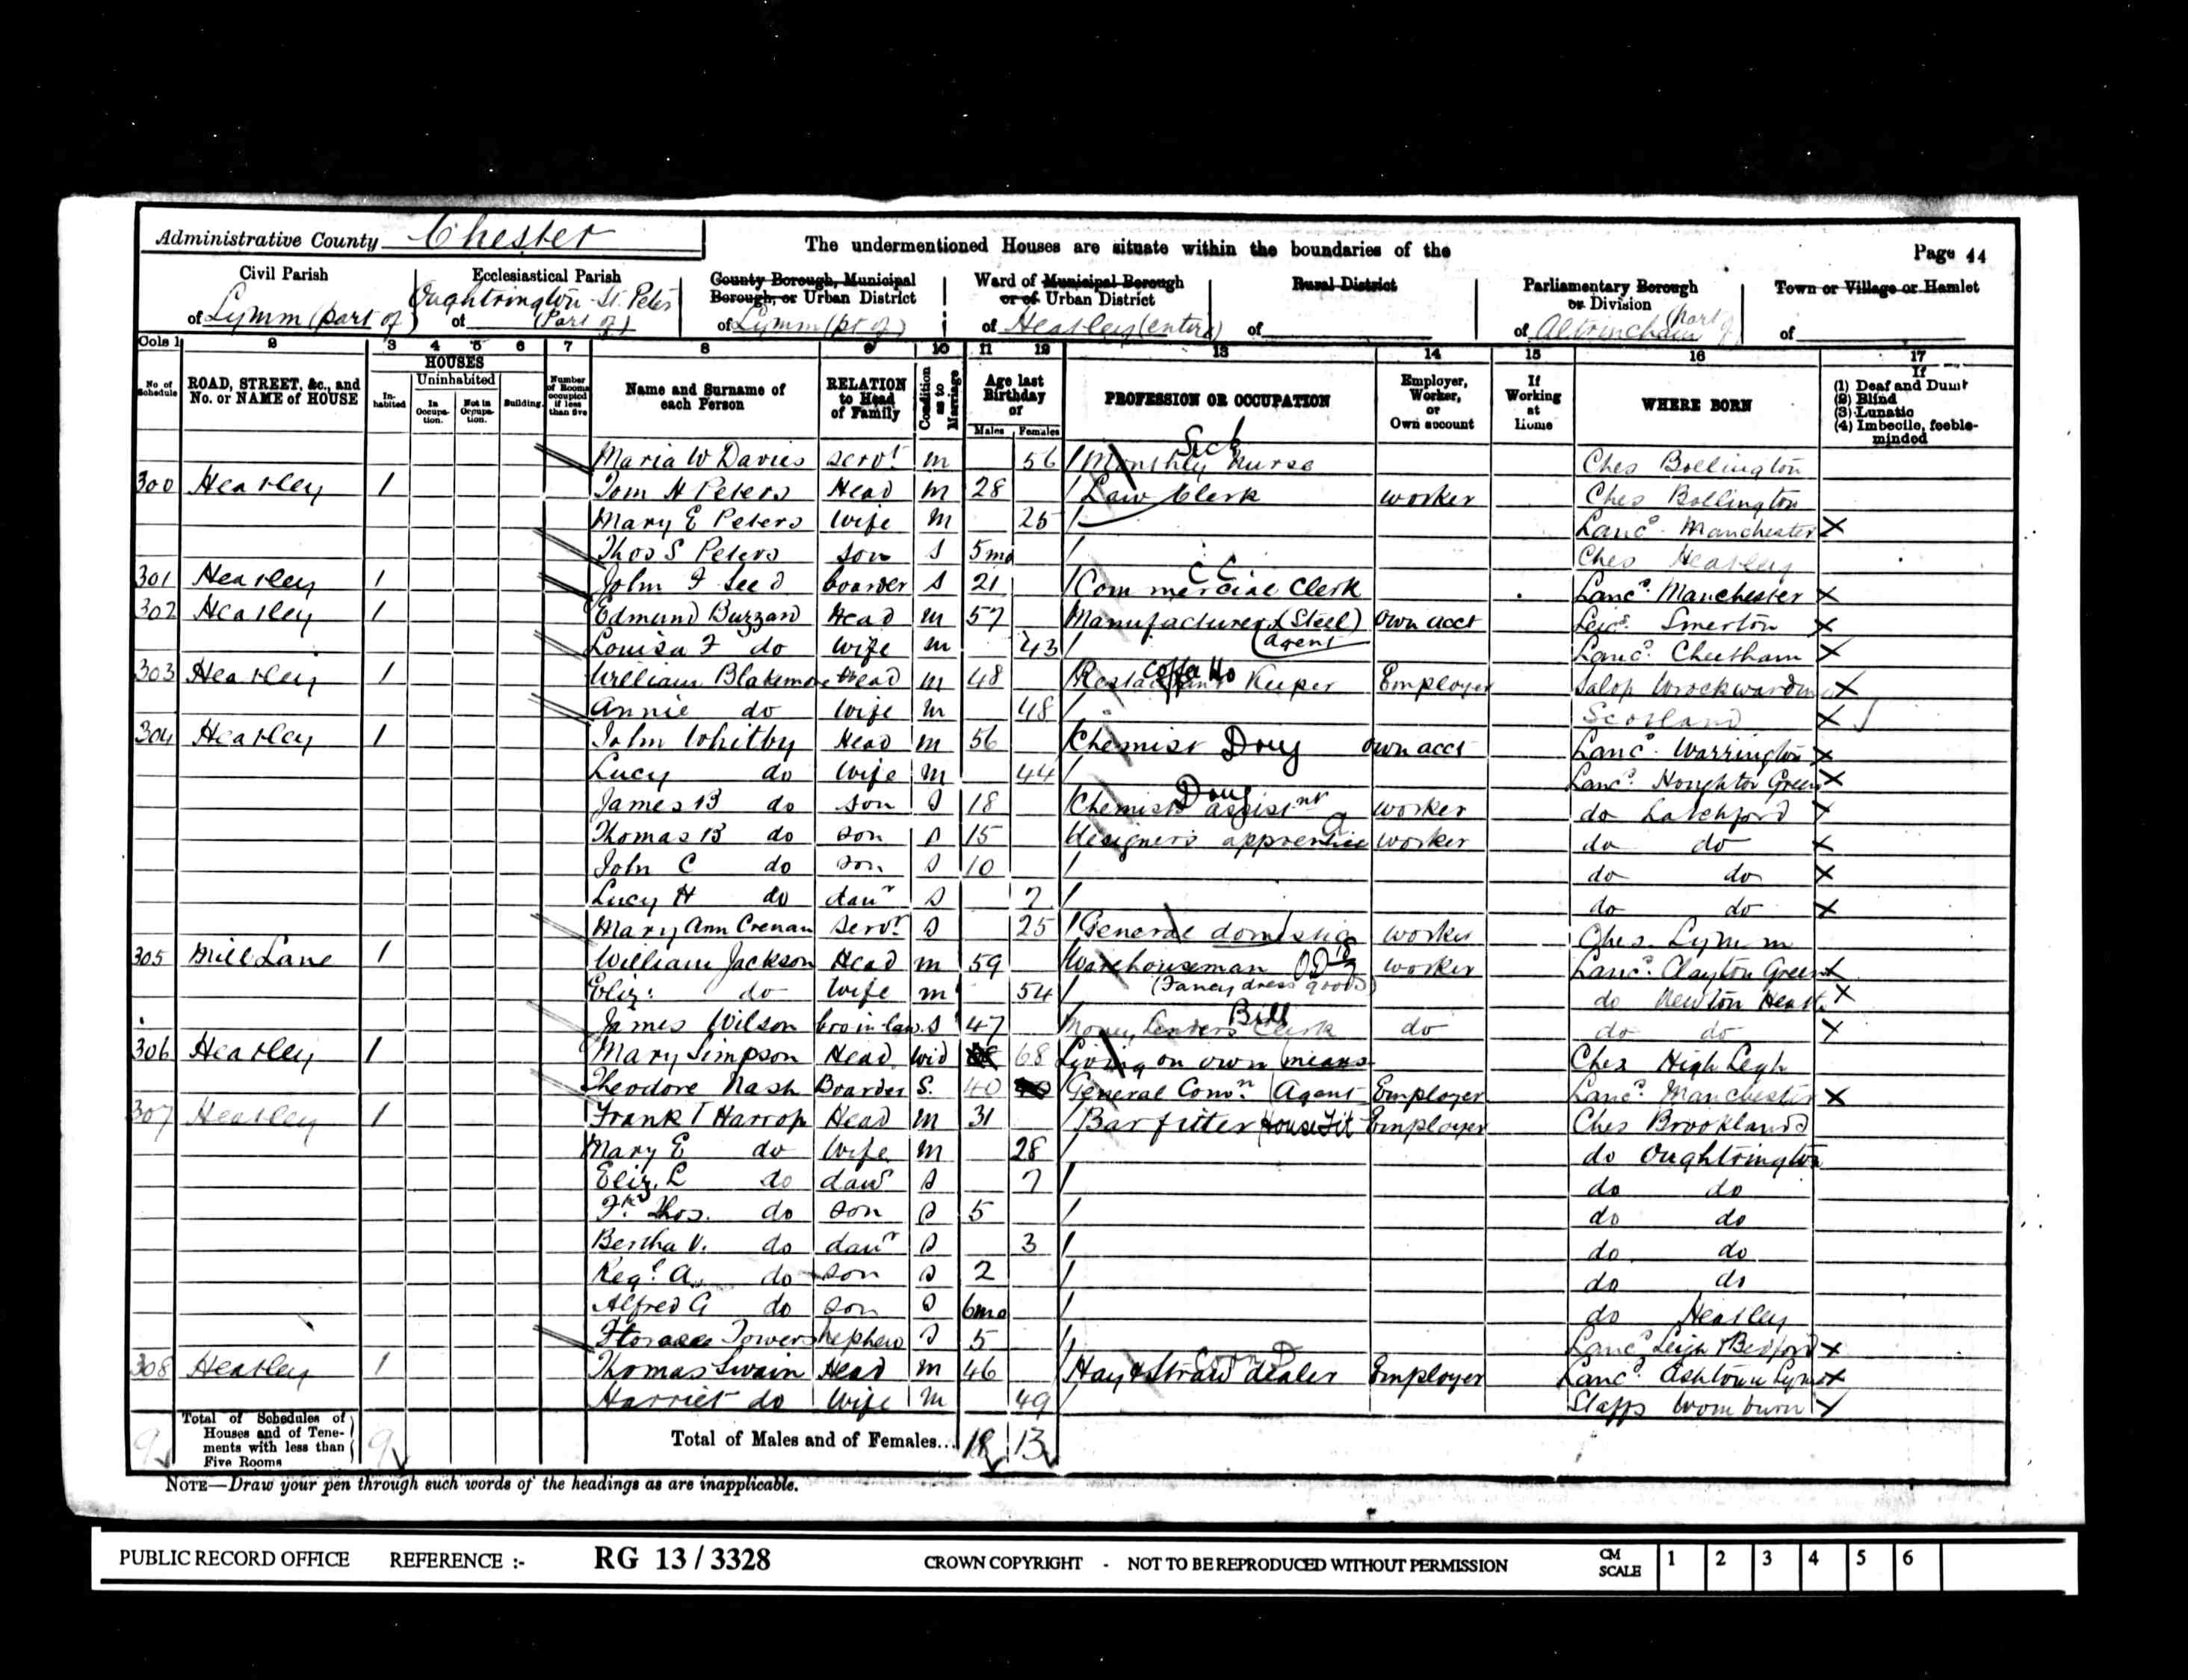 Administrative County Chester
The undermentioned Houses are situate within the boundaries of the
Page 44
Civil Parish
of Lymm (part of)
Ecclesiastical Parish
Oughtrington St. Peter
of (Part of)
County Borough, Municipal
Borough, or Urban District
of Lymm (pt of)
Ward of Municipal Borough
or of Urban District
of Heatley (entire)
Rural District
of
Parliamentary Borough
or Division
of Altrincham (part of)
Town or Village or Hamlet
of
Cols 1 2 3 4 5 6 7 8 9 10 11 12 13 14 15 16 17
No. of Schedule
ROAD, STREET, &c., and No. or NAME of HOUSE
HOUSES
In-habited
Uninhabited
In Occupa-tion.
Not in Occupa-tion.
Building.
Number of Rooms occupied if less than five
Name and Surname of each Person
RELATION to Head of Family
Condition as to Marriage
Age last Birthday of
Males Females
PROFESSION OR OCCUPATION
Employer, Worker, or Own account
If Working at Home
WHERE BORN
If
(1) Deaf and Dumb
(2) Blind
(3) Lunatic
(4) Imbecile, feeble-minded
Maria W Davies servt m 56 Monthly Nurse Sick Ches Bollington
300 Heatley 1 Tom H Peters Head m 28 Law Clerk worker Ches Bollington
Mary E Peters wife m 25 Lancs. Manchester X
Thos S Peters son S 5mo Ches Heatley
301 Heatley 1 John F Leed boarder S 21 Commercial Clerk C C Lancs. Manchester X
302 Heatley 1 Edmund Buzzard Head m 57 Manufacturers (Steel) own acct Leics. X
Louisa F do wife m 43 (agent Lancs. Cheetham X
303 Heatley 1 William Blakemore Head m 48 Restaurant Keeper Coffee Ho Employer Salop Wrockwardine X
Annie do wife m 48 Scotland X
304 Heatley 1 John Whitby Head m 56 Chemist Drug own acct Lancs. Warrington X
Lucy do wife m 44 Lancs. Houghton Green X
James B do son S 18 Chemists assistnt Drug worker do Latchford X
Thomas B do son S 15 designers apprentice worker do do X
John C do son S 10 do do X
Lucy H do daur S 7 do do X
Mary Ann Crenan servt S 25 General domestic worker Ches. Lymm
305 Mill Lane 1 William Jackson Head m 59 Warehouseman worker Lancs. Clayton Green X
Eliz: do wife m 54 (Fancy dress goods) do Newton Heath X
James Wilson bro in law S 47 Money Lenders Clerk Bill do do do X
306 Heatley 1 Mary Simpson Head Wid 68 Living on own means Ches High Legh
Theodore Nash Boarder S. 40 General Comn. Agent Employer Lancs. Manchester X
307 Heatley 1 Frank T Harrop Head m 31 Bar fitter House Fit Employer Ches Brooklands
Mary E do wife m 28 do Oughtrington
Eliz. L do daur S 7 do do
Fk. Thos. do son S 5 do do
Bertha V. do daur S 3 do do
Regl. A. do son S 2 do do
Alfred G do son S 6mo do Heatley
Horace Towers nephew S 5 Lancs Leigh Bedford X
308 Heatley 1 Thomas Swain Head m 46 Hay & Straw dealer Employer Lancs. Ashton u Lyne X
Harriet do wife m 49 Staffs Womburn X
9 Total of Schedules of Houses and of Tene-ments with less than Five Rooms 9
Total of Males and of Females... 18 13
NOTE—Draw your pen through such words of the headings as are inapplicable.
PUBLIC RECORD OFFICE REFERENCE :- RG 13 / 3328 CROWN COPYRIGHT - NOT TO BE REPRODUCED WITHOUT PERMISSION CM SCALE 1 2 3 4 5 6